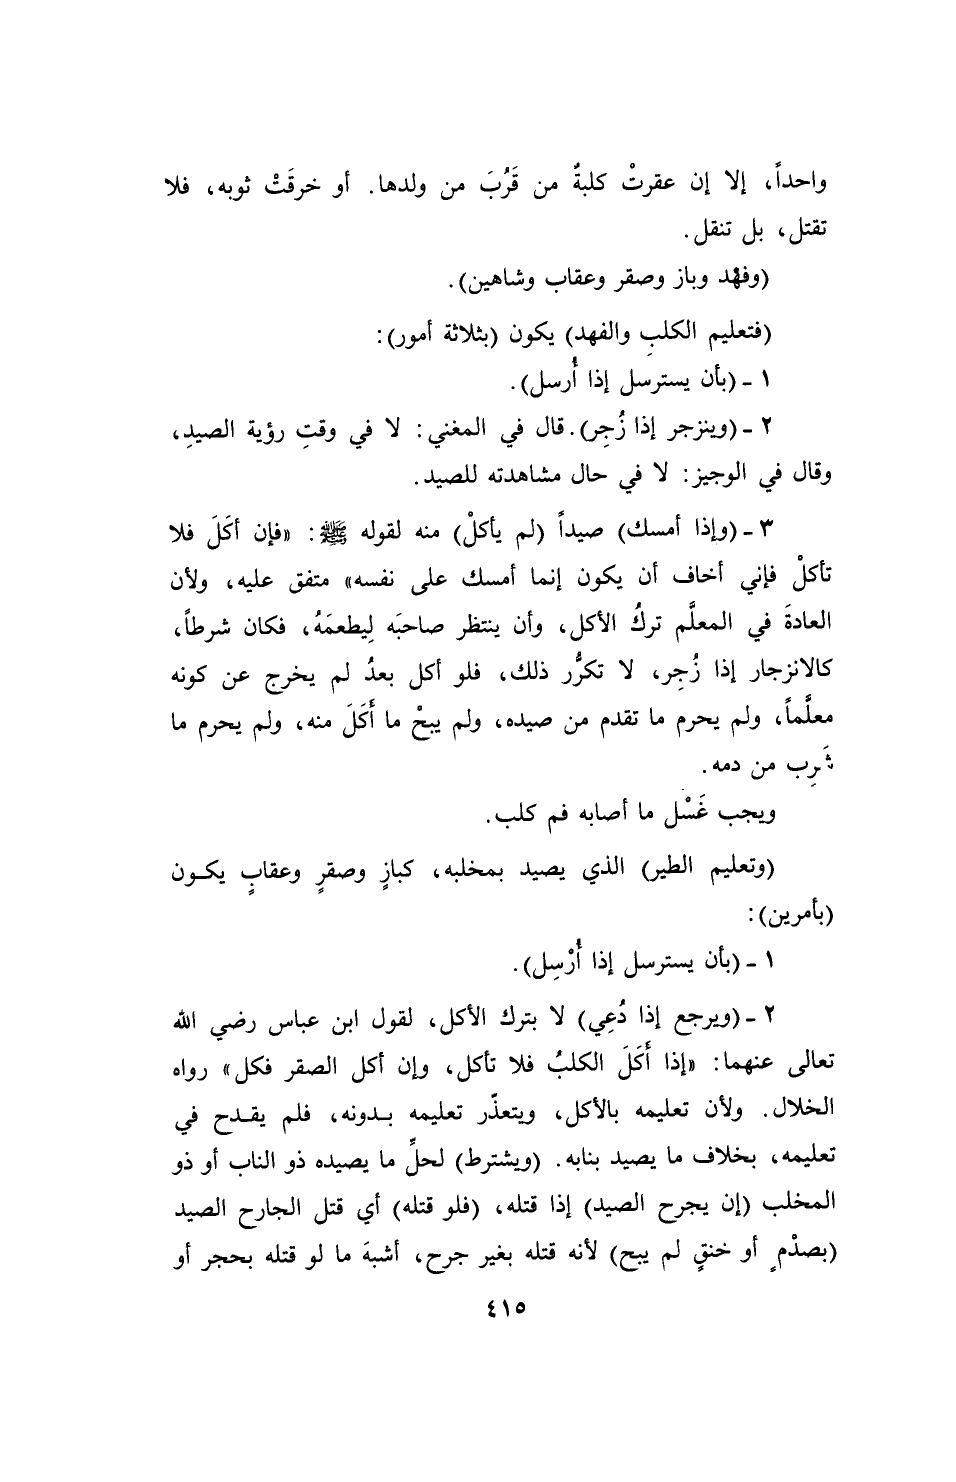 واحداً، إلا إن عقرتْ كلبةٌ من قَرُبَ من ولدها. أو خرقَتْ ثوبه، فلا
تقتل، بل تنقل.
(وفهد وباز وصقر وعقاب وشاهين).
(فتعليم الكلبِ والفهد) يكون (بثلاثة أمور):
١ - (بأن يسترسل إذا أُرسل).
٢ - (وينزجر إذا زُجِر). قال في المغني: لا في وقتِ رؤية الصيدِ،
وقال في الوجيز: لا في حال مشاهدته للصيد.
٣ - (وإذا أمسك) صيداً (لم يأكلْ) منه لقوله ﷺ: «فإن أكَلَ فلا
تأكلْ فإني أخاف أن يكون إنما أمسك على نفسه» متفق عليه، ولأن
العادةَ في المعلَّم تركُ الأكل، وأن ينتظر صاحبَه لِيطعمَهُ، فكان شرطاً،
كالانزجار إذا زُجِر، لا تكرُّر ذلك، فلو أكل بعدُ لم يخرج عن كونه
معلَّماً، ولم يحرم ما تقدم من صيده، ولم يبحْ ما أَكَلَ منه، ولم يحرم ما
شَرِب من دمه.
ويجب غَسْل ما أصابه فم كلب.
(وتعليم الطير) الذي يصيد بمخلبه، كبازٍ وصقرٍ وعقابٍ يكون
(بأمرين):
١ - (بأن يسترسل إذا أُرْسِل).
٢ - (ويرجع إذا دُعِي) لا بترك الأكل، لقول ابن عباس رضي الله
تعالى عنهما: «إذا أَكَلَ الكلبُ فلا تأكل، وإن أكل الصقر فكل» رواه
الخلال. ولأن تعليمه بالأكل، ويتعذّر تعليمه بدونه، فلم يقدح في
تعليمه، بخلاف ما يصيد بنابه. (ويشترط) لحلِّ ما يصيده ذو الناب أو ذو
المخلب (إن يجرح الصيد) إذا قتله، (فلو قتله) أي قتل الجارح الصيد
(بصدْمٍ أو خنقٍ لم يبح) لأنه قتله بغير جرح، أشبهَ ما لو قتله بحجر أو
٤١٥